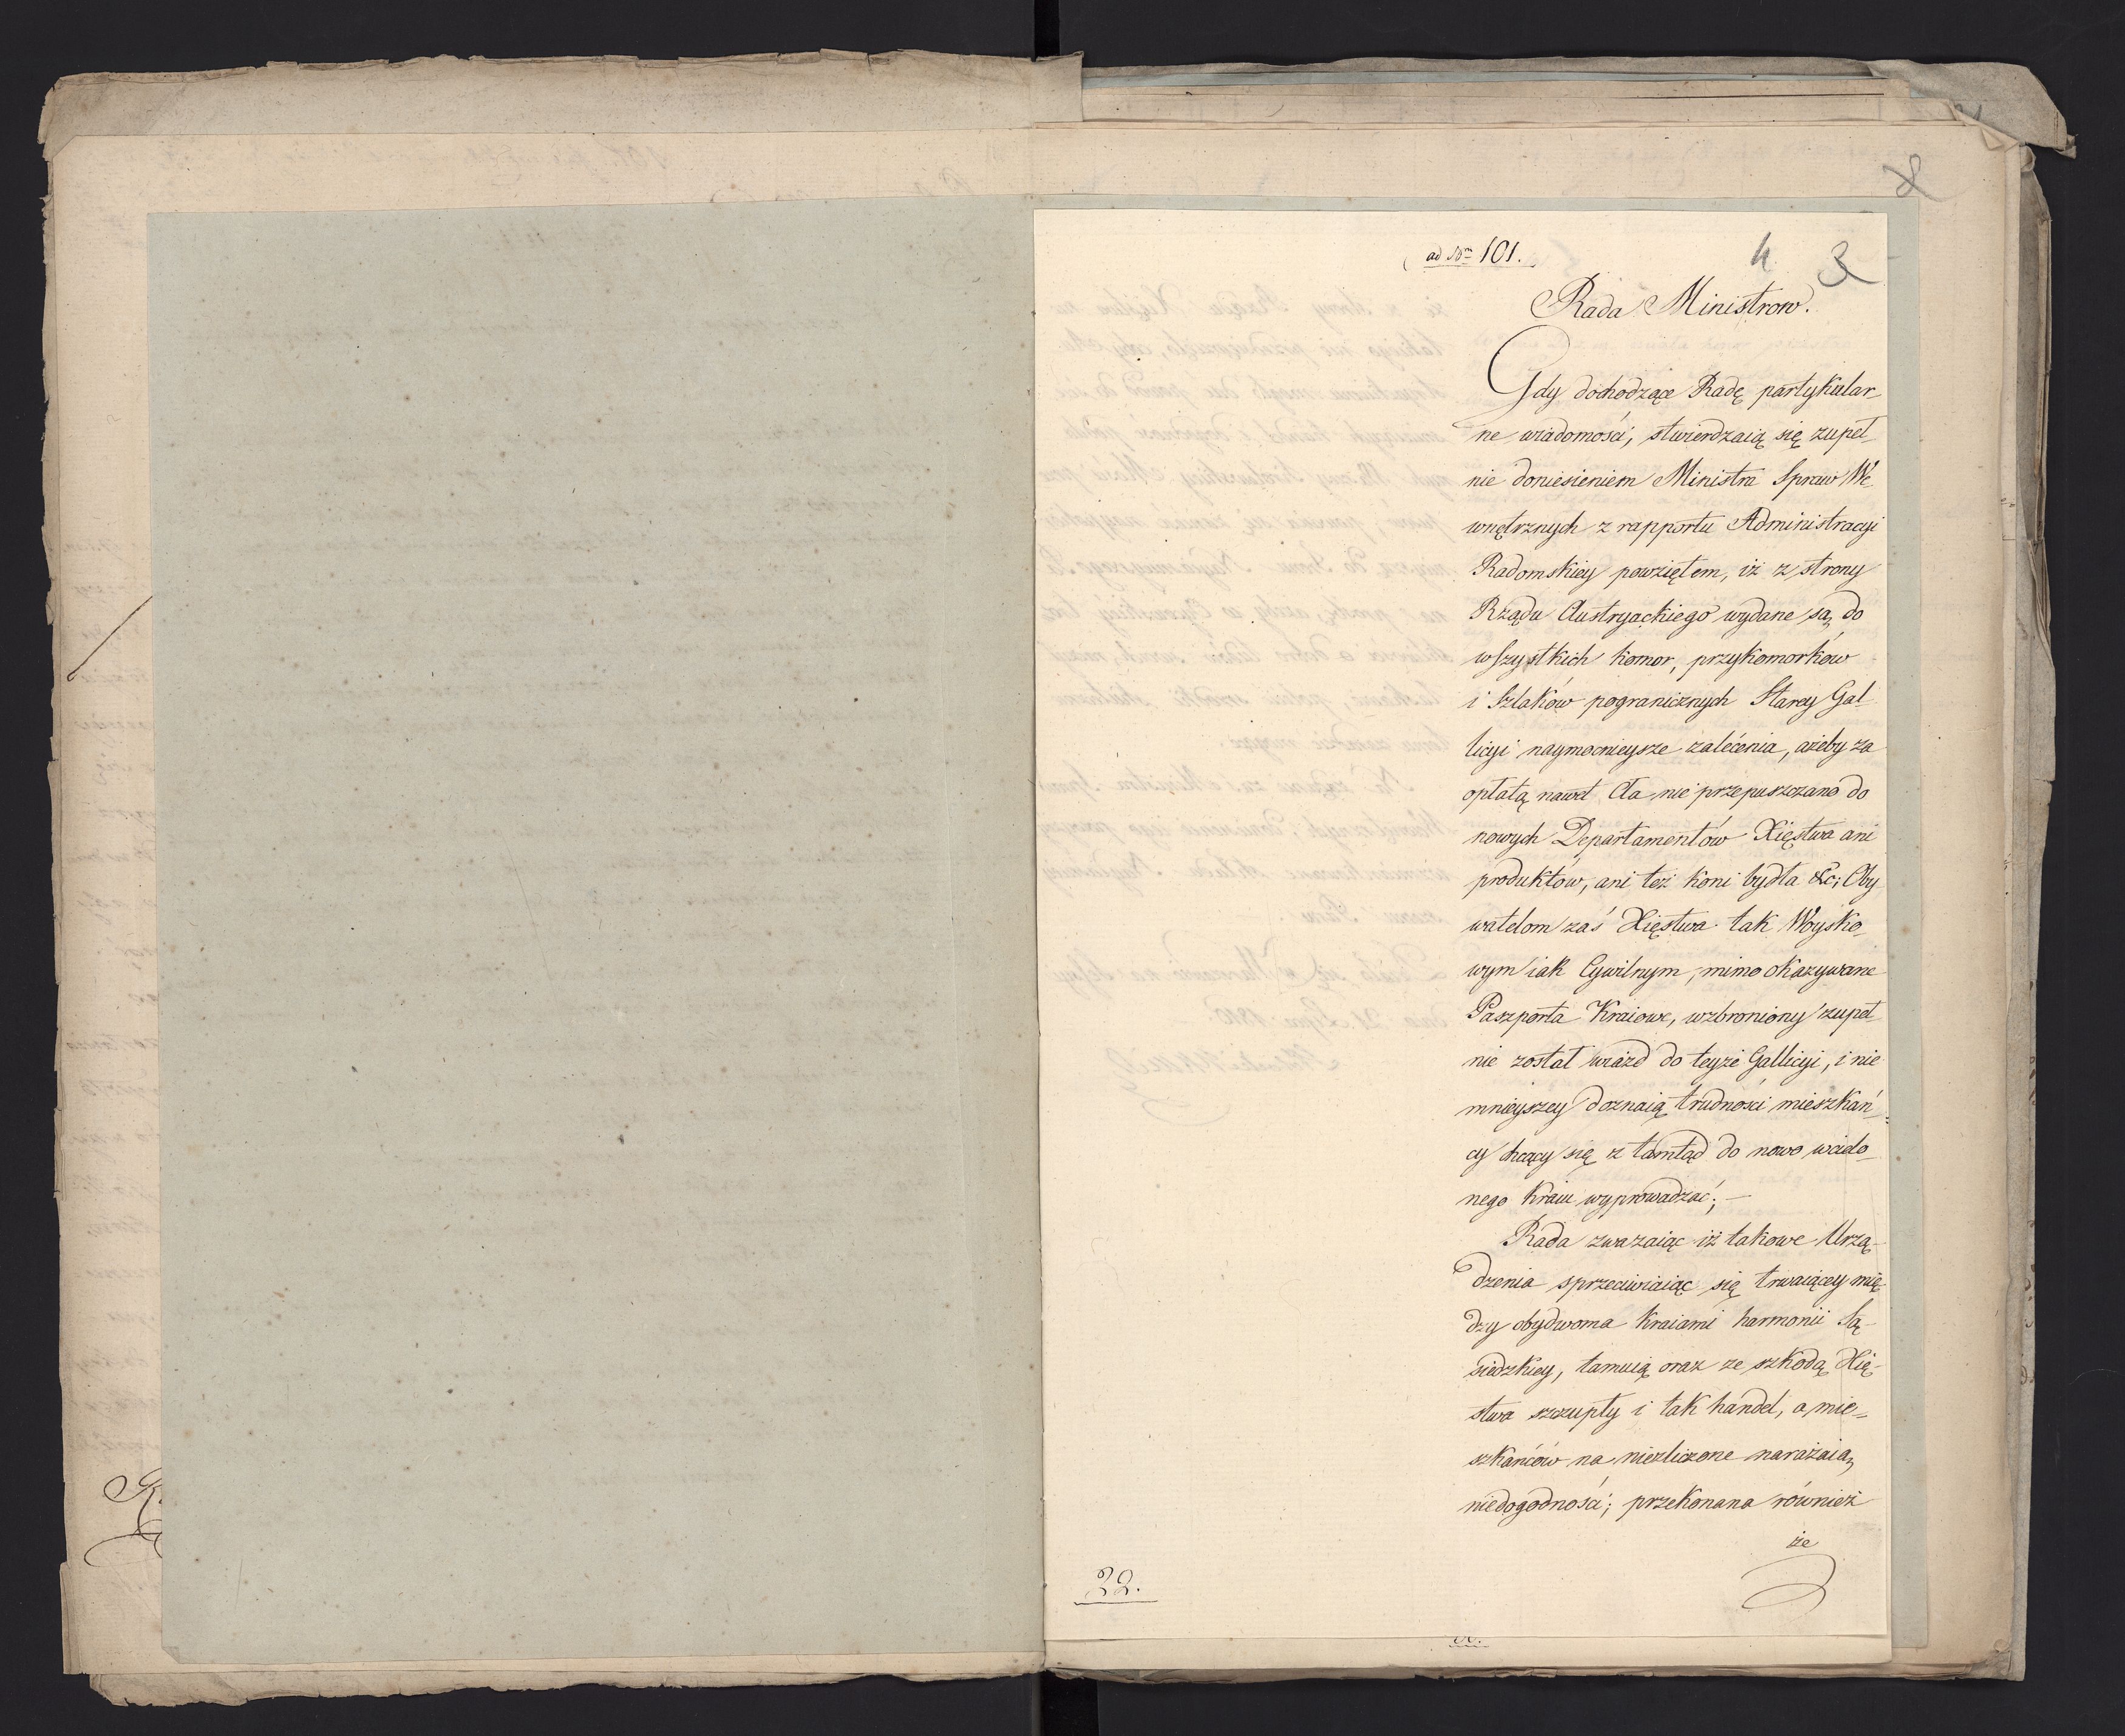 8
ad Nrm 101.
4 3
Rada Ministrow.
Gdy dochodzące Radę partykular-
ne wiadomości, stwierdzaią się zupeł
nie doniesieniem Ministra Spraw We
wnętrznych z rapportu Administracyi
Radomskiey powziętem, iż z strony
Rządu Austryackiego wydane są do
wszystkich komor, przykomorków
i Szlaków pogranicznych Starey Gal
licyi naymocnieysze zalécenia, ażeby za
opłatą nawet Cła nie przepuszczano do
nowych Departamentów Xięstwa ani
produktów, ani też koni bydła &c; Oby
watelom zaś Xięstwa tak Woysko-
wym iak Cywilnym, mimo okazywane
Paszporta Kraiowe, wzbroniony zupeł
nie został wiazd do teyże Gallicyi, i nie
mnieyszey doznaią trudności mieszkań
cy chcący się z tamtąd do nowo wcielo-
nego kraiu wyprowadzać; —
Rada zważaiąc iż takowe Urzą-
dzenia sprzeciwiaiąc się trwaiącey mię
dzy obydwoma kraiami harmonii Są-
siedzkiey, tamuią oraz ze szkodą Xię-
stwa szczupły i tak handel, a mie-
szkańców na niezliczone narażaią
niedogodności; przekonana również
że
22.